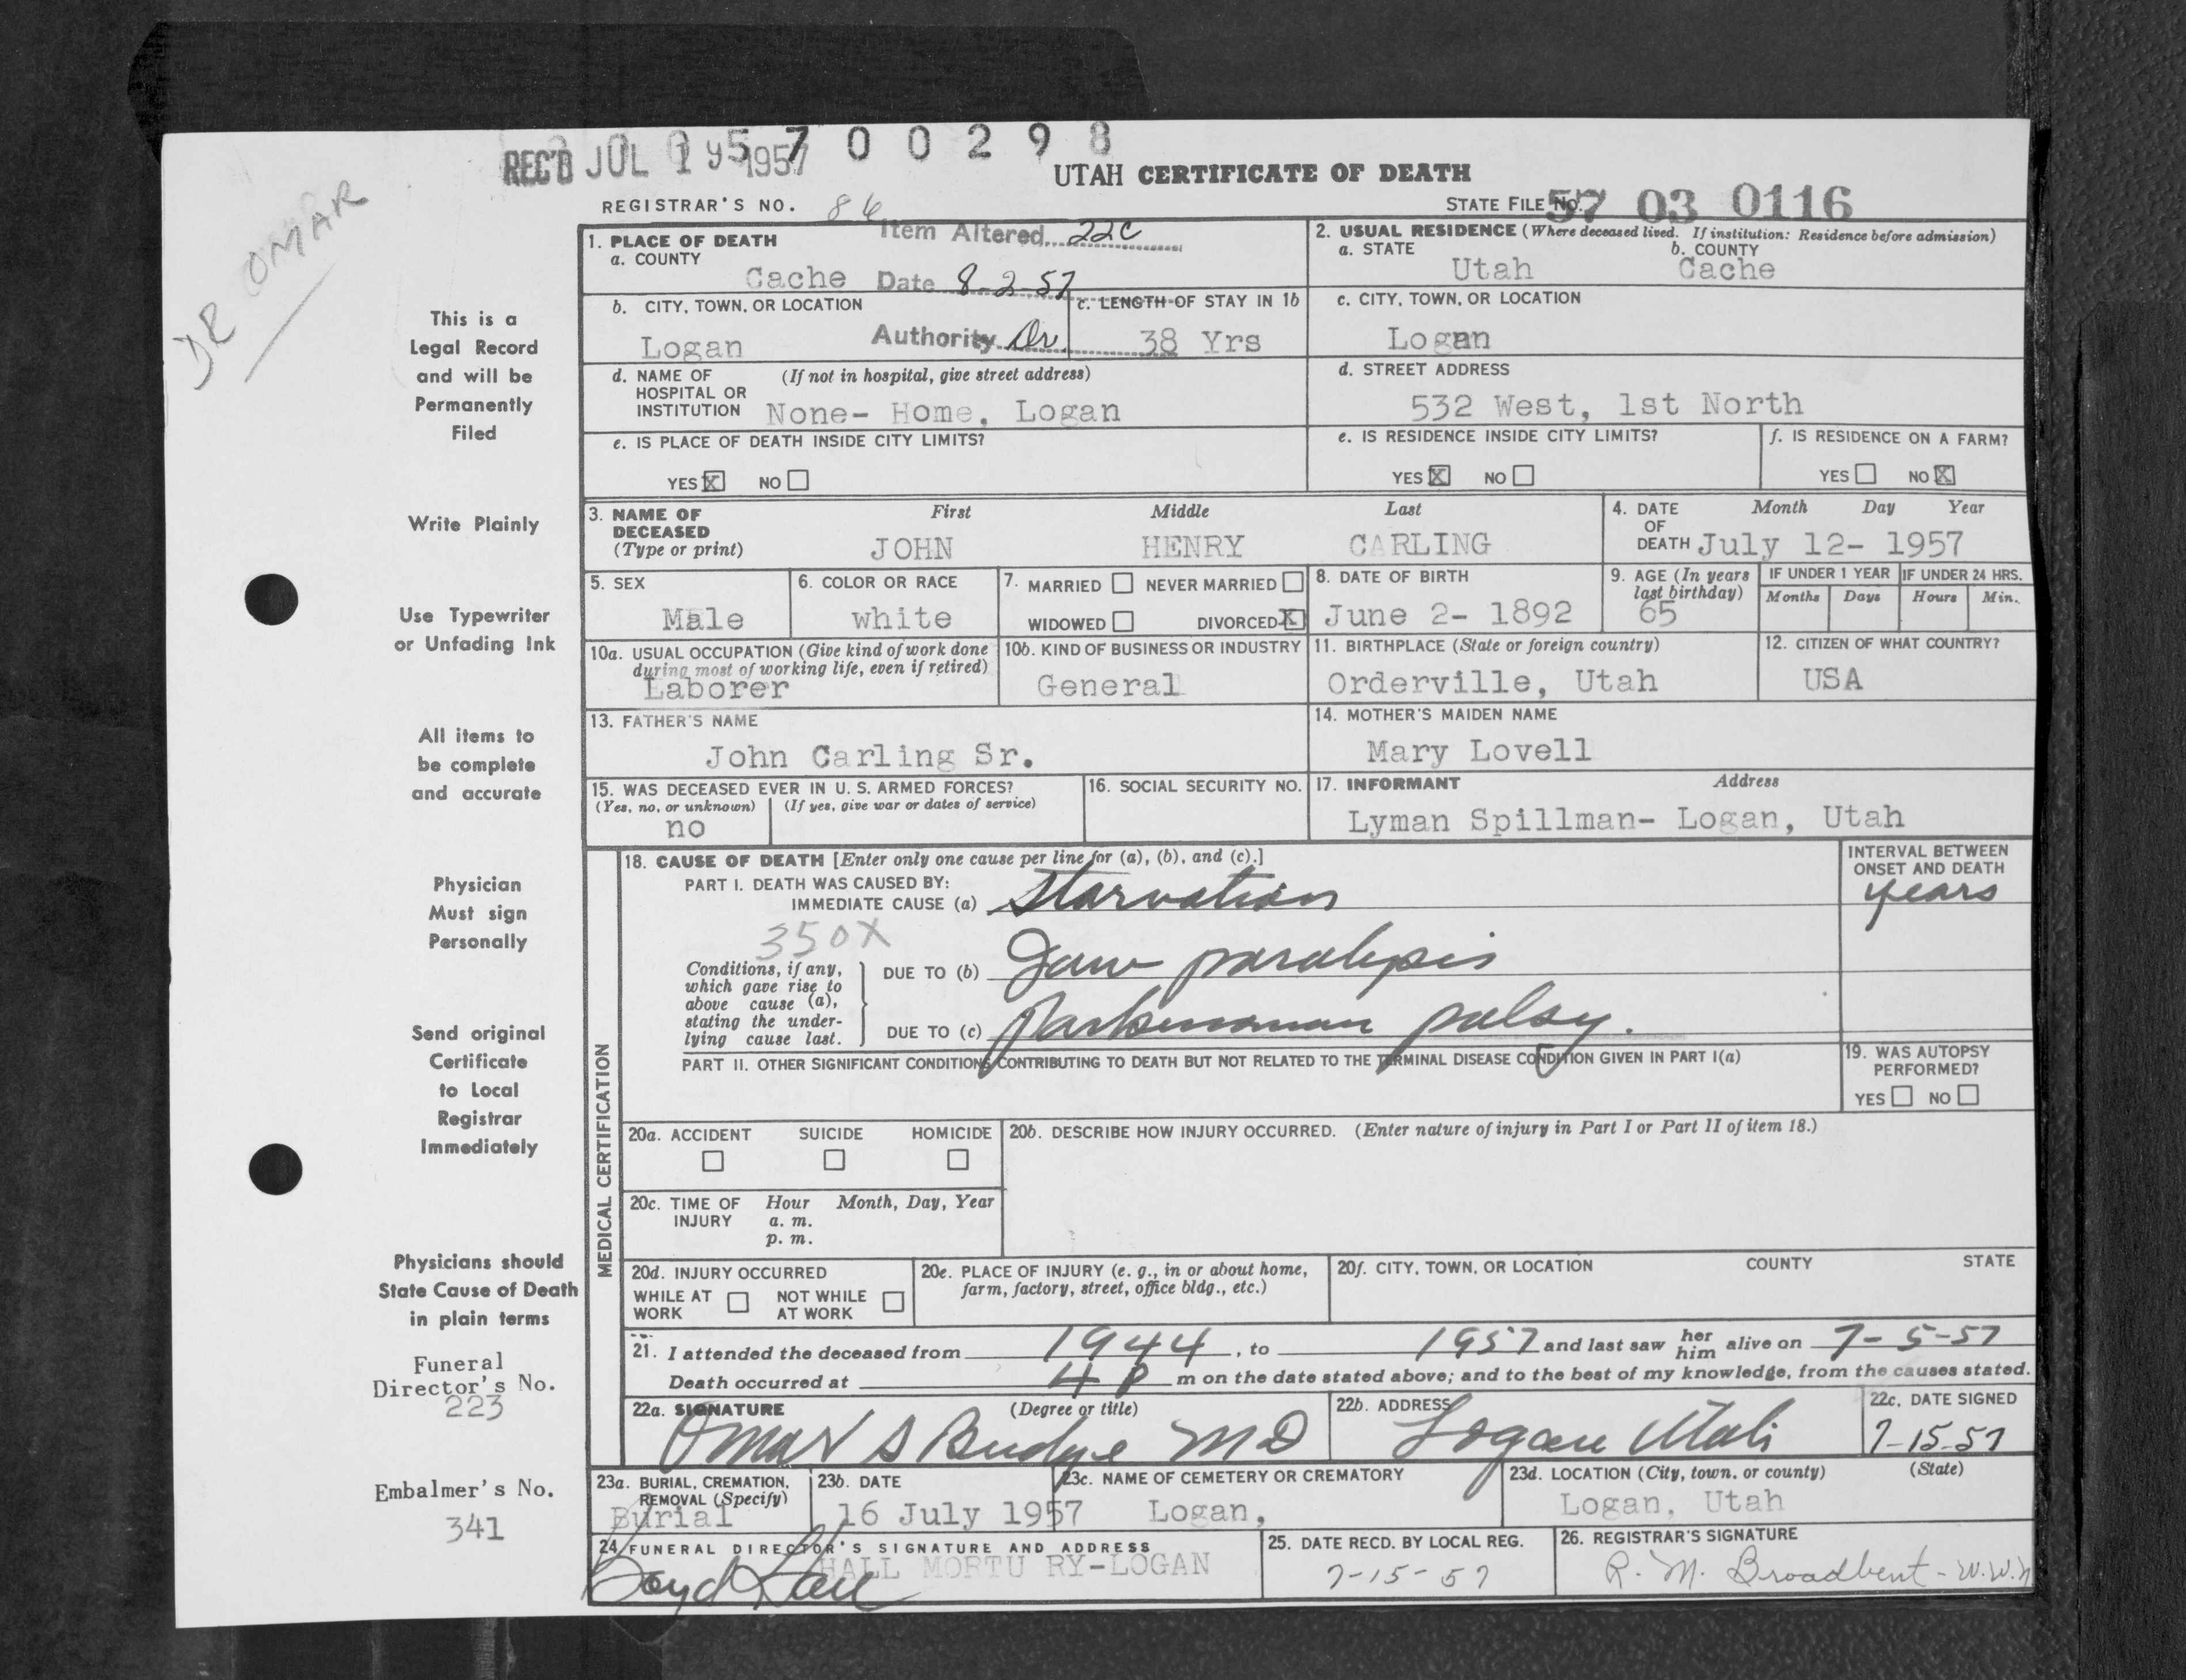 REC'D JUL 19 1957
5 7 0 0 2 9 8
UTAH CERTIFICATE OF DEATH
REGISTRAR'S NO. 86
STATE FILE NO. 57 03 0116
DR OMAR
Item Altered 22c
Date 8-2-57
Authority Dr.
1. PLACE OF DEATH
a. COUNTY
Cache
b. CITY, TOWN, OR LOCATION
Logan
c. LENGTH OF STAY IN 1b
38 Yrs
d. NAME OF (If not in hospital, give street address)
HOSPITAL OR
INSTITUTION None- Home, Logan
e. IS PLACE OF DEATH INSIDE CITY LIMITS?
YES X NO
2. USUAL RESIDENCE (Where deceased lived. If institution: Residence before admission)
a. STATE b. COUNTY
Utah Cache
c. CITY, TOWN, OR LOCATION
Logan
d. STREET ADDRESS
532 West, 1st North
e. IS RESIDENCE INSIDE CITY LIMITS?
YES X NO
f. IS RESIDENCE ON A FARM?
YES NO X
3. NAME OF First Middle Last
DECEASED
(Type or print) JOHN HENRY CARLING
4. DATE Month Day Year
OF
DEATH July 12- 1957
5. SEX
Male
6. COLOR OR RACE
white
7. MARRIED NEVER MARRIED
WIDOWED DIVORCED X
8. DATE OF BIRTH
June 2- 1892
9. AGE (In years
last birthday)
65
IF UNDER 1 YEAR
Months Days
IF UNDER 24 HRS.
Hours Min.
10a. USUAL OCCUPATION (Give kind of work done
during most of working life, even if retired)
Laborer
10b. KIND OF BUSINESS OR INDUSTRY
General
11. BIRTHPLACE (State or foreign country)
Orderville, Utah
12. CITIZEN OF WHAT COUNTRY?
USA
13. FATHER'S NAME
John Carling Sr.
14. MOTHER'S MAIDEN NAME
Mary Lovell
15. WAS DECEASED EVER IN U. S. ARMED FORCES?
(Yes, no, or unknown) (If yes, give war or dates of service)
no
16. SOCIAL SECURITY NO.
17. INFORMANT Address
Lyman Spillman- Logan, Utah
MEDICAL CERTIFICATION
18. CAUSE OF DEATH [Enter only one cause per line for (a), (b), and (c).]
PART I. DEATH WAS CAUSED BY:
IMMEDIATE CAUSE (a) Starvation
INTERVAL BETWEEN
ONSET AND DEATH
years
350X
Conditions, if any,
which gave rise to
above cause (a),
stating the under-
lying cause last.
DUE TO (b) Jaw paralysis
DUE TO (c) Parkinsonian palsy.
PART II. OTHER SIGNIFICANT CONDITIONS CONTRIBUTING TO DEATH BUT NOT RELATED TO THE TERMINAL DISEASE CONDITION GIVEN IN PART I(a)
19. WAS AUTOPSY
PERFORMED?
YES NO
20a. ACCIDENT SUICIDE HOMICIDE
20b. DESCRIBE HOW INJURY OCCURRED. (Enter nature of injury in Part I or Part II of item 18.)
20c. TIME OF Hour Month, Day, Year
INJURY a. m.
p. m.
20d. INJURY OCCURRED
WHILE AT NOT WHILE
WORK AT WORK
20e. PLACE OF INJURY (e. g., in or about home,
farm, factory, street, office bldg., etc.)
20f. CITY, TOWN, OR LOCATION COUNTY STATE
21. I attended the deceased from 1944, to 1957 and last saw her him alive on 7-5-57
Death occurred at 4 P m on the date stated above; and to the best of my knowledge, from the causes stated.
22a. SIGNATURE (Degree or title)
Omar S Budge MD
22b. ADDRESS
Logan Utah
22c. DATE SIGNED
7-15-57
23a. BURIAL, CREMATION,
REMOVAL (Specify)
Burial
23b. DATE
16 July 1957
23c. NAME OF CEMETERY OR CREMATORY
Logan,
23d. LOCATION (City, town, or county) (State)
Logan, Utah
24. FUNERAL DIRECTOR'S SIGNATURE AND ADDRESS
HALL MORTU RY-LOGAN
Boyd Hall
25. DATE RECD. BY LOCAL REG.
7-15-57
26. REGISTRAR'S SIGNATURE
R. M. Broadbent - W.W.
This is a
Legal Record
and will be
Permanently
Filed
Write Plainly
Use Typewriter
or Unfading Ink
All items to
be complete
and accurate
Physician
Must sign
Personally
Send original
Certificate
to Local
Registrar
Immediately
Physicians should
State Cause of Death
in plain terms
Funeral
Director's No.
223
Embalmer's No.
341